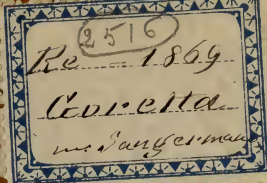 2516
Re 1869
Goretta
m. Sangerman